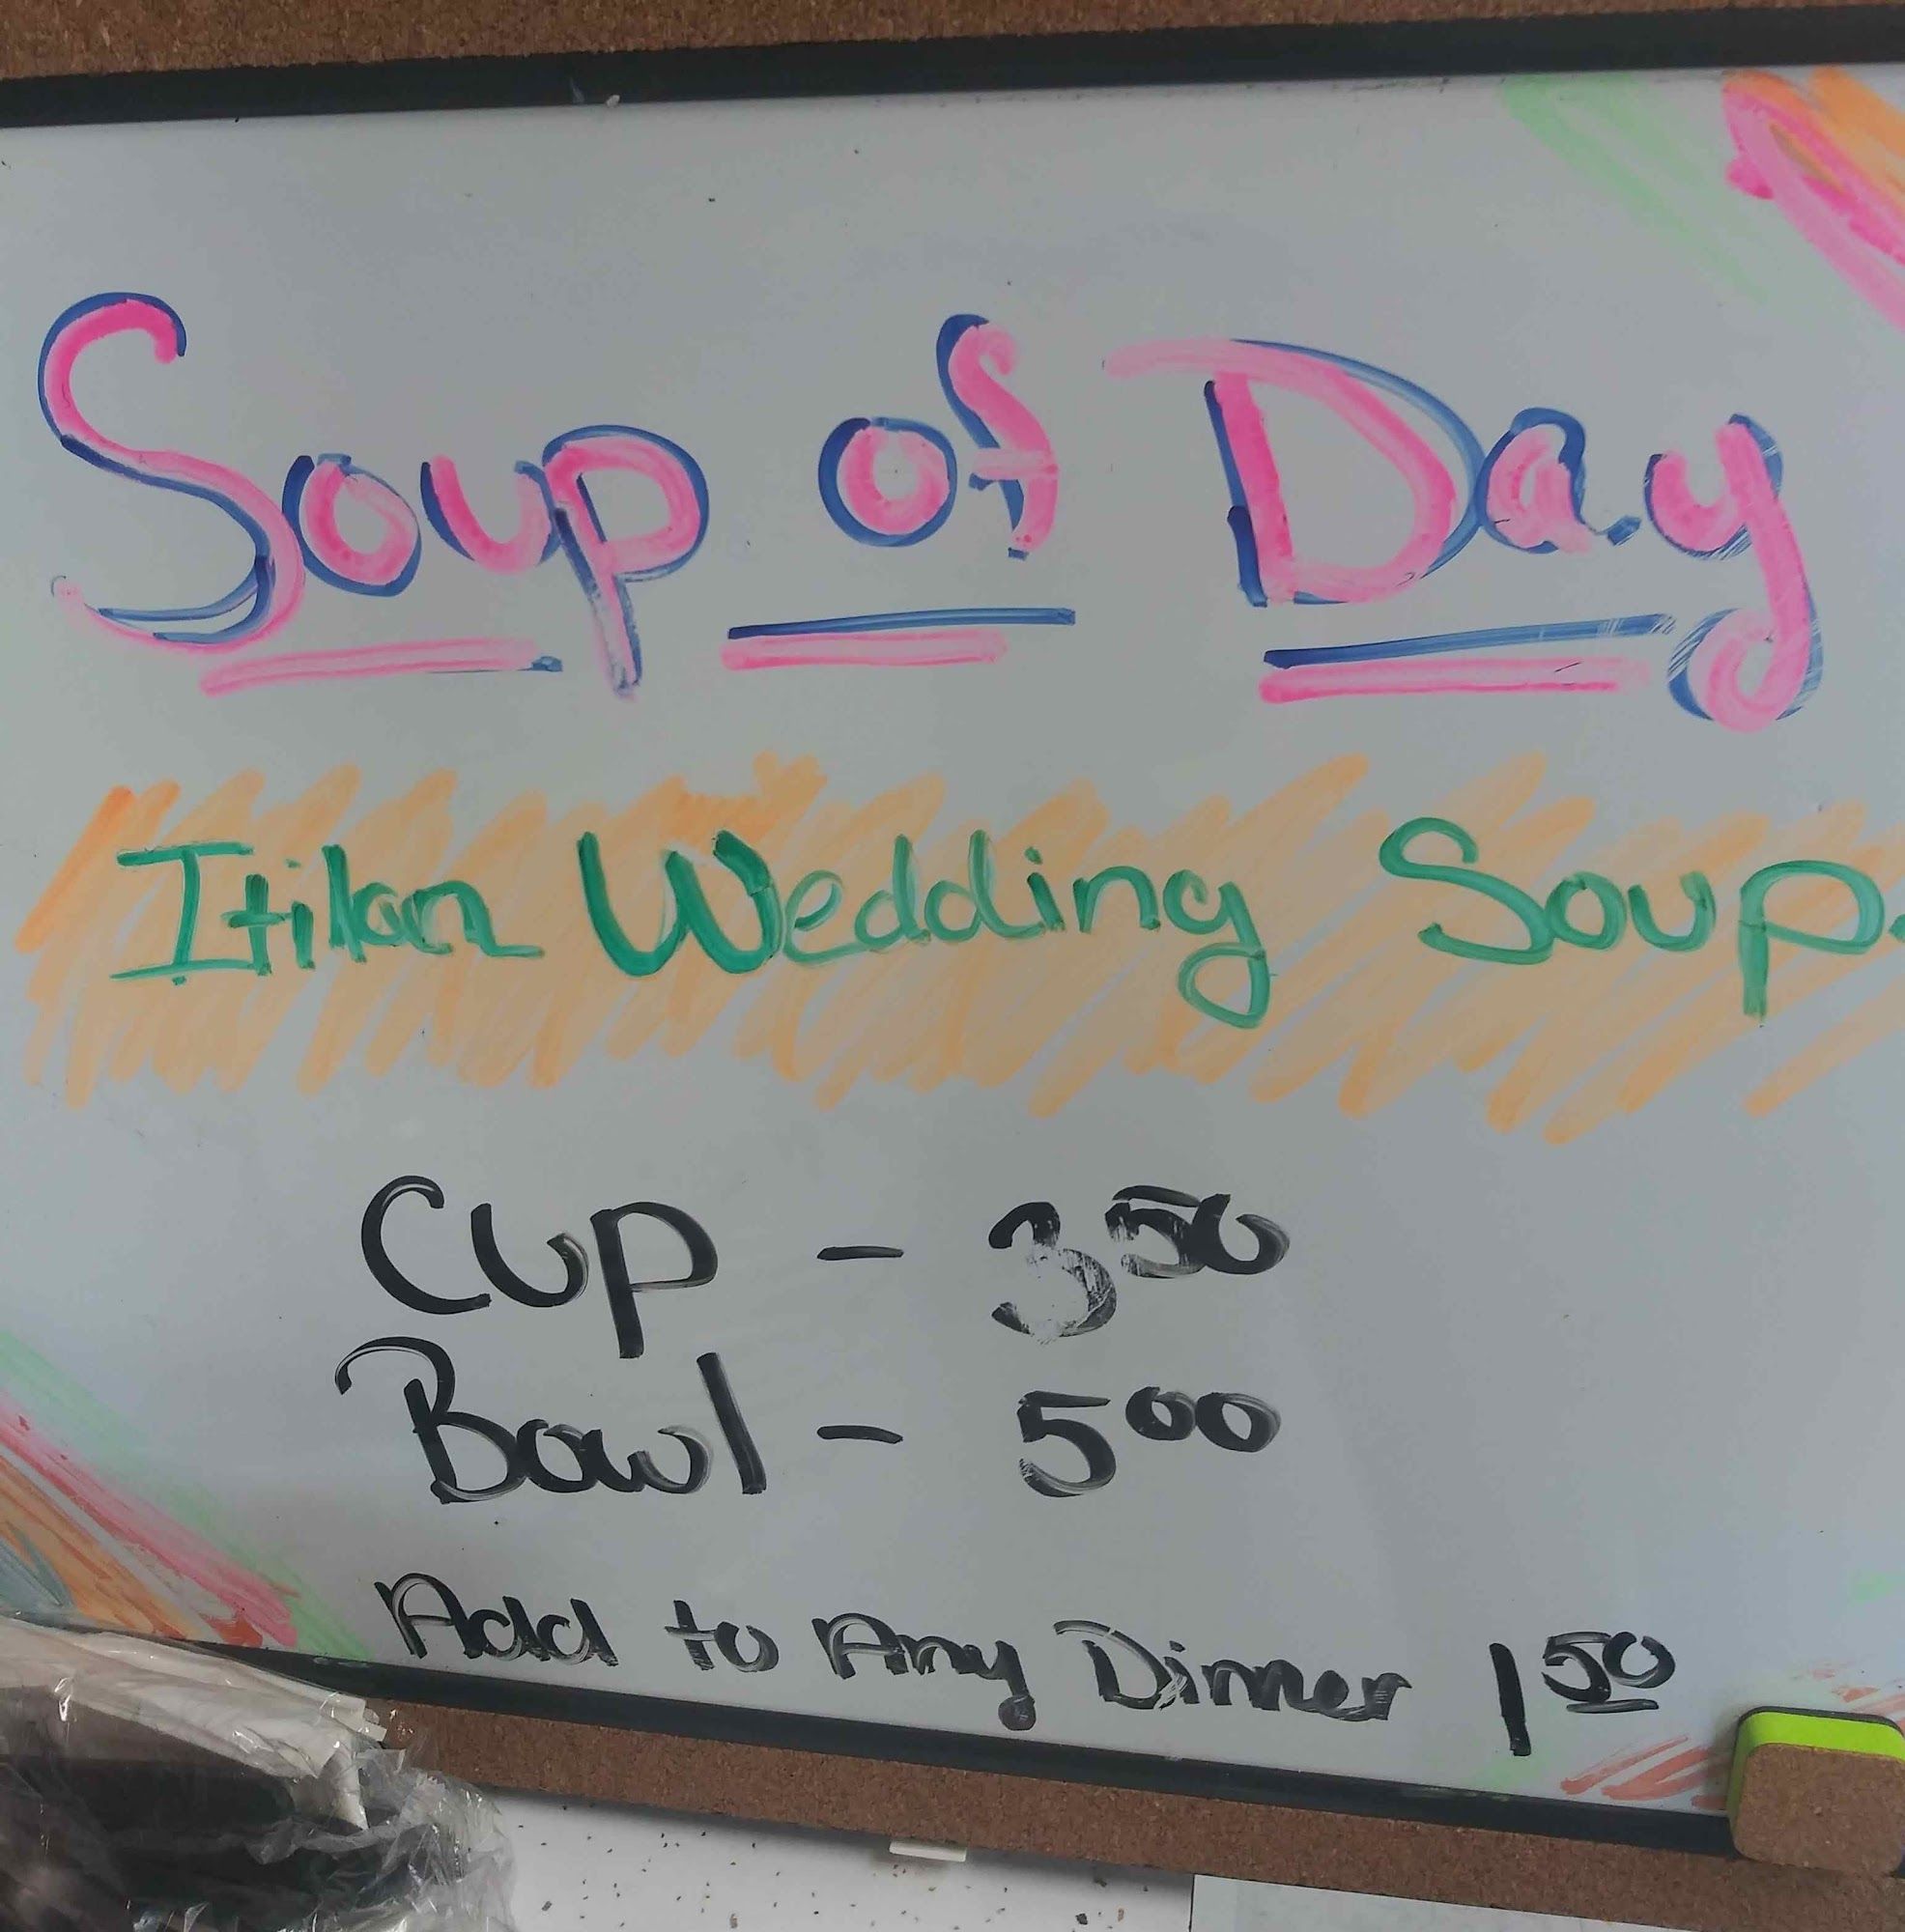 Soup of Day
Itilan Wedding Soup.
Cup - 3 50
Bowl - 5 00
Add to Any Dinner 1 50